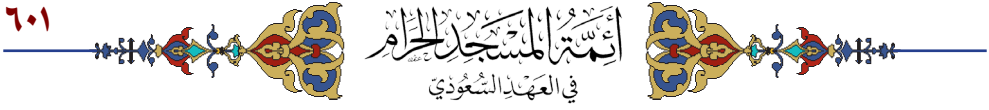 ٦٠١
أَئِمَّةُ المَسْجِدِ الحَرَامِ
في العَهْدِ السُّعُودِيّ